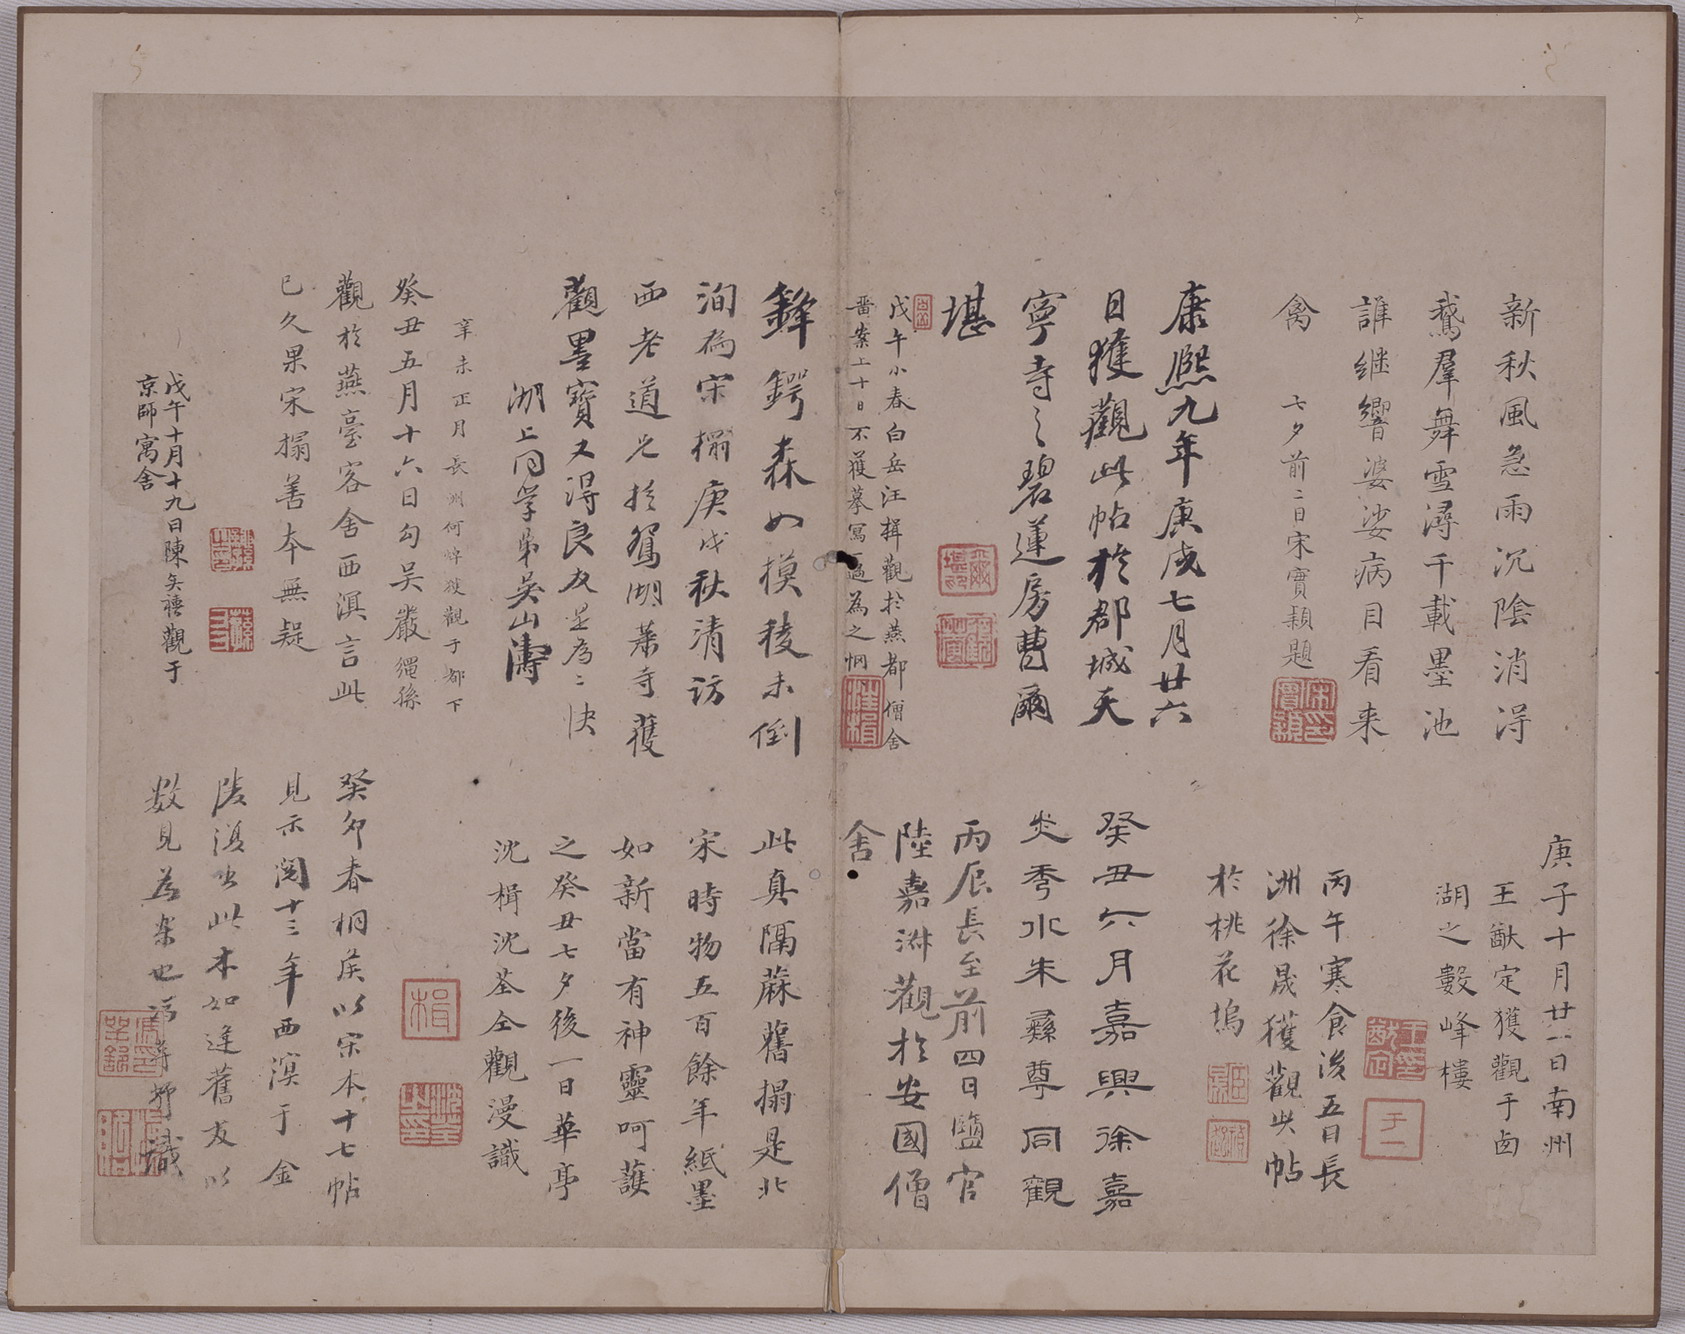 新秋風急雨沉陰消得
鵞羣舞雪潯千載墨池
誰継響婆娑病目看来
禽
七夕前二日宋實穎題
庚子十月廿一日南州
王猷定獲觀于卤
湖之數峰樓
丙午寒食後五日長
洲徐晟獲觀此帖
於桃花塢
康熙九年庚戌七月廿六
日獲觀此帖於郡城天
寧寺之碧蓮房曹爾
堪
癸丑六月嘉興徐嘉
炎秀水朱彝尊同觀
丙辰長至前四日鹽官
陸嘉淋觀於安國僧
舍
戊午小春白岳汪楫觀於燕都僧舍
畱案上十日不獲摹寫一過為之惘
鋒鍔森如模稜未倒
洵為宋搨庚戌秋清訪
西老道兄於鴛湖葉寺獲
觀墨寶又得良友是為二快
湖上同學弟吳山濤
此真隔麻舊搨是北
宋時物五百餘年紙墨
如新當有神靈呵護
之癸丑七夕後一日華亭
沈楫沈荃仝觀漫識
辛未正月長洲何焯獲觀于都下
癸丑五月十六日勾吳嚴繩孫
觀於燕臺客舍西溟言此
已久果宋搨善本無疑
癸卯春桐矦以宋本十七帖
見示閱十三年西溟于金
陵復出此本如逢舊友以
数見為樂也
識
戊午十月十九日陳奕禧觀于
京師寓舍